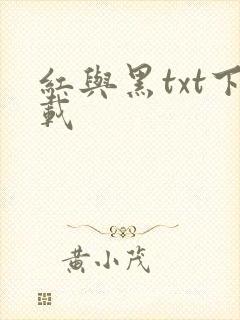 紅與黑txt下
載
黃小茂